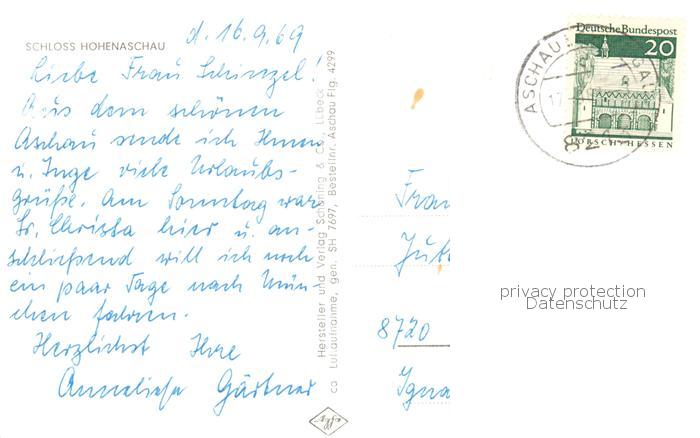 SCHLOSS HOHENASCHAU
d. 16.9.69
Liebe Frau Schinzel!
Aus dem schönen
Aschau sende ich Ihnen
u. Inge viele Urlaubs-
grüße. Am Sonntag war
Sr. Christa hier u. an-
schließend will ich noch
ein paar Tage nach Mün-
chen fahren.
Herzlichst Ihre
Anneliese Gärtner
Hersteller und Verlag Schöning & Co., Lübeck
ca Luftaufnahme, gen. SH 7697, Bestellnr. Aschau Flg. 4299
Deutsche Bundespost
20
LORSCH/HESSEN
ASCHAU
Frau
Jutt
8720
Igna
privacy protection
Datenschutz